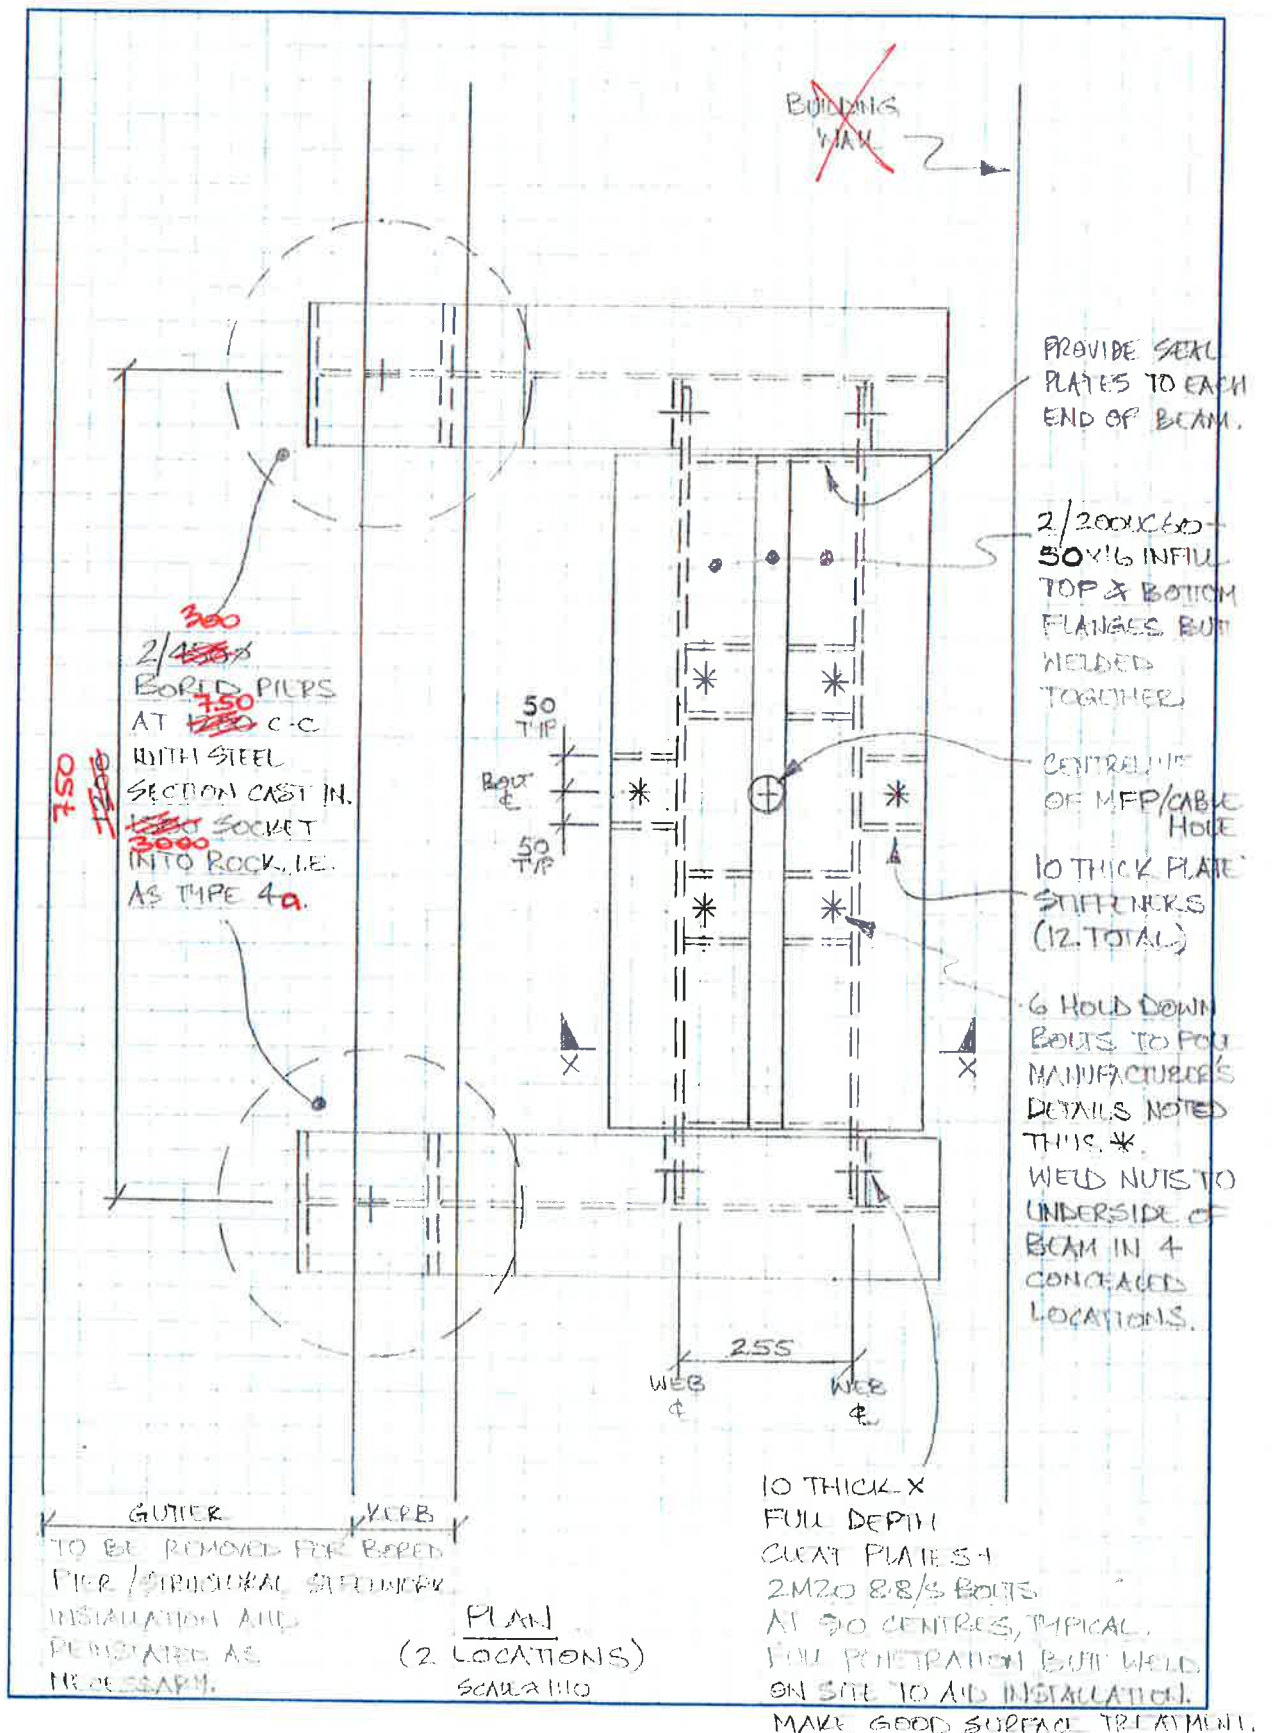 BUILDING
WALL
PROVIDE SEAL
PLATES TO EACH
END OF BEAM.
2/200UC60 -
50X16 INFILL
TOP & BOTTOM
FLANGES BUTT
WELDED
TOGETHER.
CENTRELINE
OF MFP/CABLE
HOLE
10 THICK PLATE
STIFFENERS
(12. TOTAL)
6 HOLD DOWN
BOLTS TO
MANUFACTURER'S
DETAILS NOTED
THUS *.
WELD NUTS TO
UNDERSIDE OF
BEAM IN 4
CONCEALED
LOCATIONS.
300
2/450ø
BORED PIERS
750
AT C-C
WITH STEEL
SECTION CAST IN.
SOCKET
3000
INTO ROCK, I.E.
AS TYPE 4a.
750
1200
50
TYP
BOLT
℄
50
TYP
X
X
255
WEB
℄
WEB
℄
GUTTER
KERB
TO BE REMOVED FOR BORED
PIER / STRUCTURAL STEELWORK
INSTALLATION AND
REINSTATED AS
NECESSARY.
PLAN
(2 LOCATIONS)
SCALE 1:10
10 THICK X
FULL DEPTH
CLEAT PLATES +
2M20 8.8/S BOLTS
AT 90 CENTRES, TYPICAL.
FULL PENETRATION BUTT WELD
ON SITE TO AID INSTALLATION.
MAKE GOOD SURFACE TREATMENT.